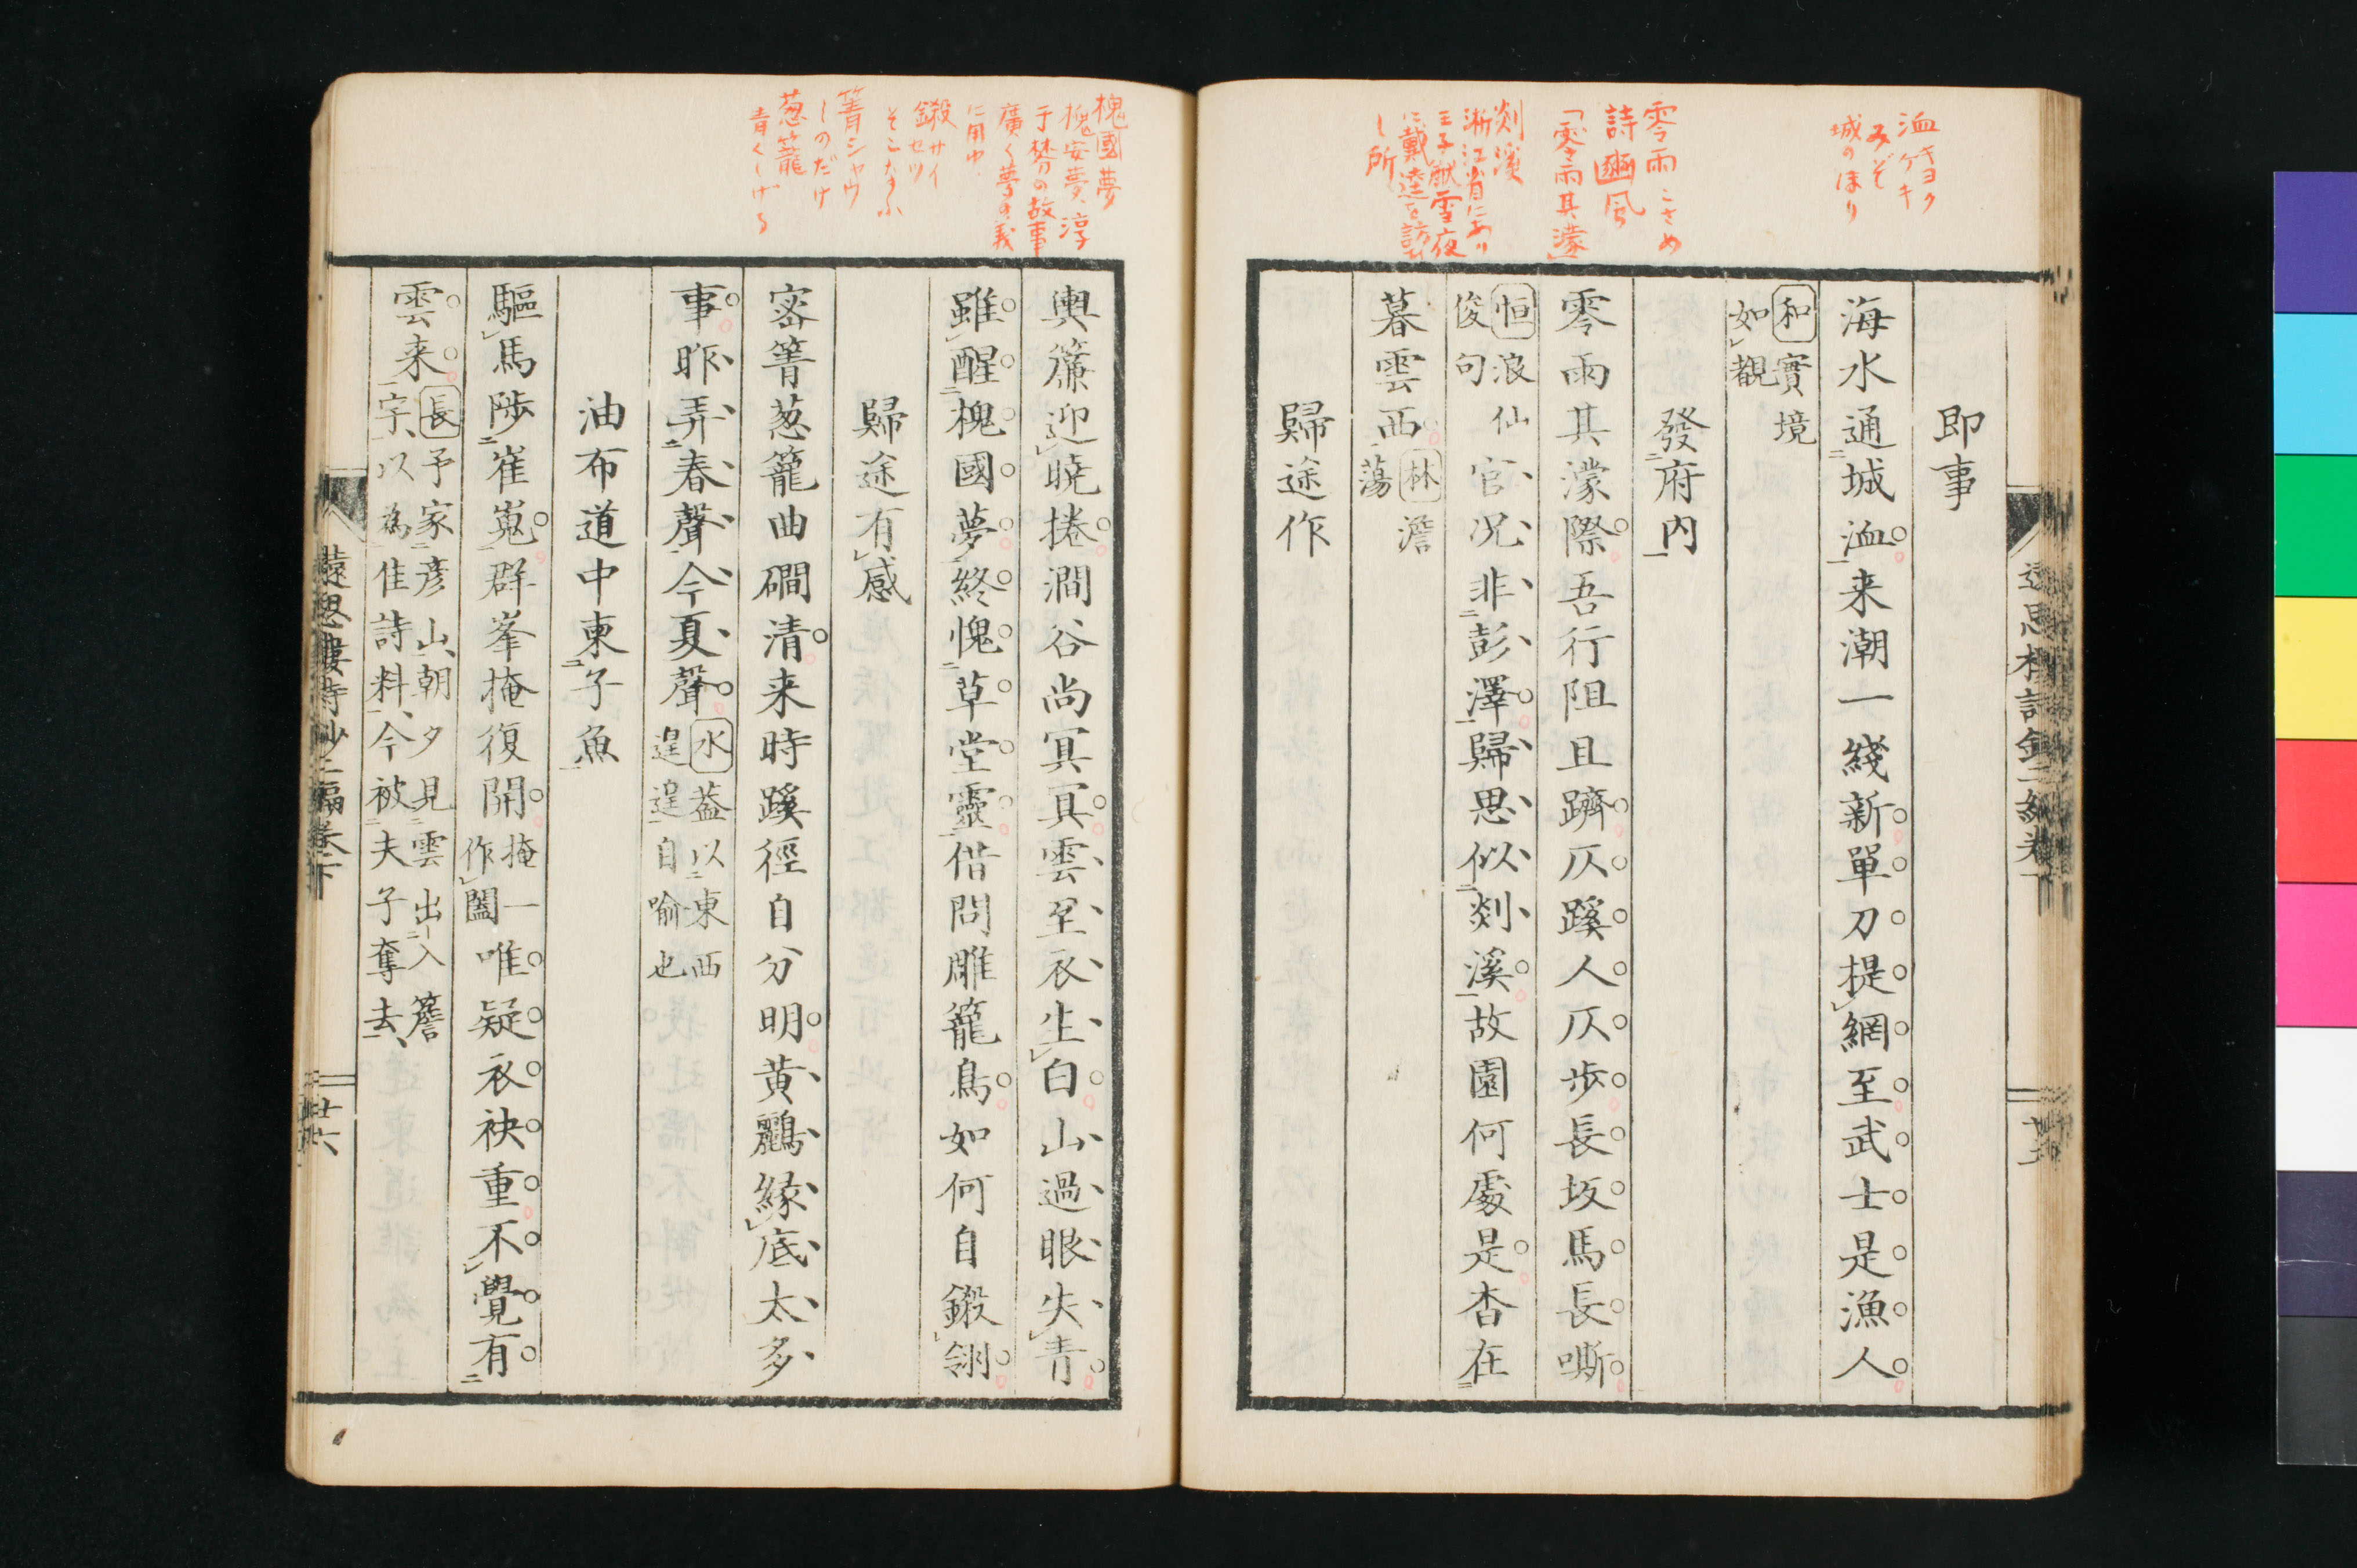 洫 キヨク
ケキ
みぞ
城のほり
零雨 こさめ
詩豳風
「零雨其濛」
剡溪
浙江省にあり
王子猷雪夜
に戴逵を訪ひ
し所
即事
海水通城洫来潮一綫新單刀提網至武士是漁人
和實境
如觀
發府内
零雨其濛際吾行阻且躋仄蹊人仄步長坂馬長嘶
恒浪仙
俊句
官况非彭澤歸思似剡溪故園何處是杳在
暮雲西
林澹
蕩
歸途作
遠思樓詩鈔二編卷下
槐國夢
槐安夢、淳
于棼の故事
廣く夢の義
に用ゆ
鎩 サイ
セツ
そこなふ
箐 シヤウ
しのだけ
葱籠
青くしげる
輿簾迎曉捲澗谷尚冥冥雲罜衣生白山過眼失青
雖醒槐國夢終愧草堂靈借問雕籠鳥如何自鎩翎
歸途有感
密箐葱籠曲磵清来時蹊徑自分明黄鸝緣底太多
事昨弄春聲今夏聲
水葢以東西
遑遑自喻也
油布道中柬子魚
驅馬陟崔嵬群峯掩復開
掩一
作闔
唯疑衣袂重不覺有
雲来
長予家彦山朝夕見雲出入簷
宇、以為佳詩料、今被夫子奪去、
遠思樓詩鈔二編卷下
廿六